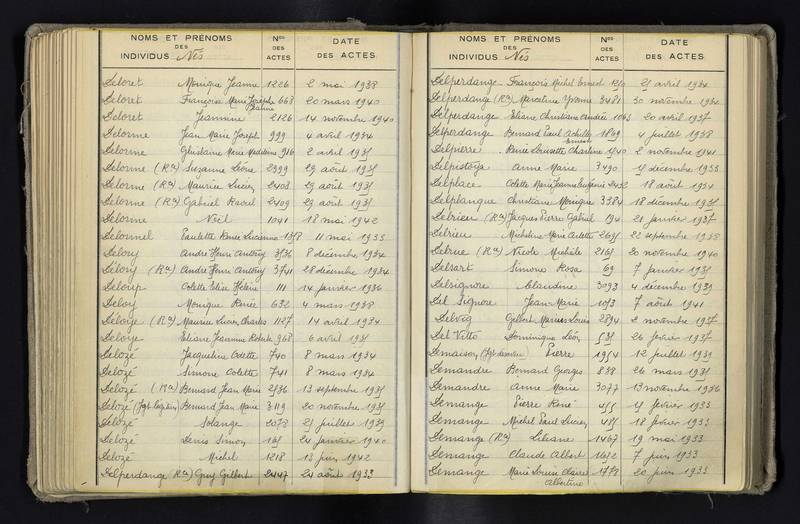 NOMS ET PRÉNOMS DES INDIVIDUS Nés | Nos DES ACTES | DATE DES ACTES
Deloret Monique Jeanne 1226 2 mai 1938
Deloret François Marie Joseph 668 20 mars 1940
Deloret Jeannine 2126 14 novembre 1940
Delorme Jean Marie Joseph 999 4 avril 1934
Delorme Ghislaine Marie Madeleine 916 2 avril 1935
Delorme (Ron) Suzanne Léone 2399 29 août 1935
Delorme (Ron) Maurice Lucien 2408 29 août 1935
Delorme (Ron) Gabriel Raoul 2409 29 août 1935
Delorme Noël 1041 18 mai 1942
Delormel Paulette Renée Lucienne 11 mai 1933
Delory André Henri Antony 3536 8 décembre 1934
Délory (Ron) André Henri Antony 3741 28 décembre 1934
Deloup Colette Elise Hélène 111 14 janvier 1936
Deloy Monique Renée 632 4 mars 1938
Deloye (Ron) Maurice Lucien Charles 1127 14 avril 1934
Deloye Eliane Jeannine 968 6 avril 1935
Delozé Jacqueline Colette 740 8 mars 1934
Delozé Simone Colette 741 8 mars 1934
Delozé (Ron) Bernard Jean Marie 2536 13 septembre 1935
Delozé Bernard Jean Marie 3119 20 novembre 1935
Delozé Solange 2078 25 juillet 1939
Delozé Denis Simon 165 24 janvier 1940
Delozé Michel 1218 13 juin 1942
Delperdange (Ron) Guy Gilbert 2447 24 août 1933
NOMS ET PRÉNOMS DES INDIVIDUS Nés | Nos DES ACTES | DATE DES ACTES
Delperdange François Michel Ernest 1210 25 avril 1934
Delperdange (Ron) Marceline Yvonne 3481 30 novembre 1934
Delperdange Eliane Christiane Andrée 1063 20 avril 1937
Delperdange Bernard Paul Achille Ernest 1809 4 juillet 1938
Delpierre Renée Louisette Charline 1940 2 novembre 1941
Delpistoya Anne Marie 3490 15 décembre 1933
Delplace Odette Marie Jeanne Eugénie 2432 18 août 1934
Delplanque Christiane Monique 3384 18 décembre 1935
Delrieu (Ron) Jacques Pierre Gabriel 194 21 janvier 1937
Delrieu Micheline Marie Arlette 2635 22 septembre 1938
Delrue (Ron) Nicole Michèle 2165 20 novembre 1940
Delsart Simone Rosa 69 7 janvier 1935
Délsignore Claudine 3093 4 décembre 1939
Del Signore Jean Marie 1053 7 août 1941
Delvig Gilbert Marius Louis 2894 2 novembre 1937
Del Vitto Dominique Léon 535 26 février 1937
Demaison Pierre 1954 12 juillet 1939
Demandre Bernard Georges 838 26 mars 1935
Demandre Anne Marie 3077 13 novembre 1936
Demange Pierre René 455 15 février 1933
Demange Michel Paul Lucien 485 18 février 1933
Demange (Ron) Liliane 1467 19 mai 1933
Demange Claude Albert 1632 7 juin 1933
Demange Marie Louise Claire Albertine 1779 20 juin 1933